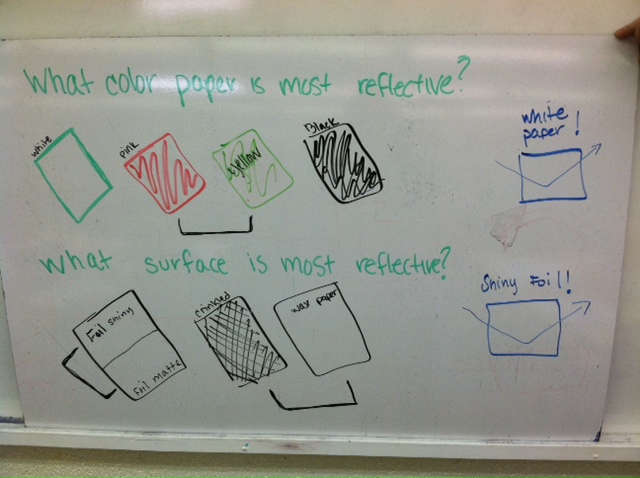 What color paper is most reflective?
white
pink
yellow
Black
white
paper!
What surface is most reflective?
Foil shiny
Foil matte
crinkled
wax paper
Shiny Foil!